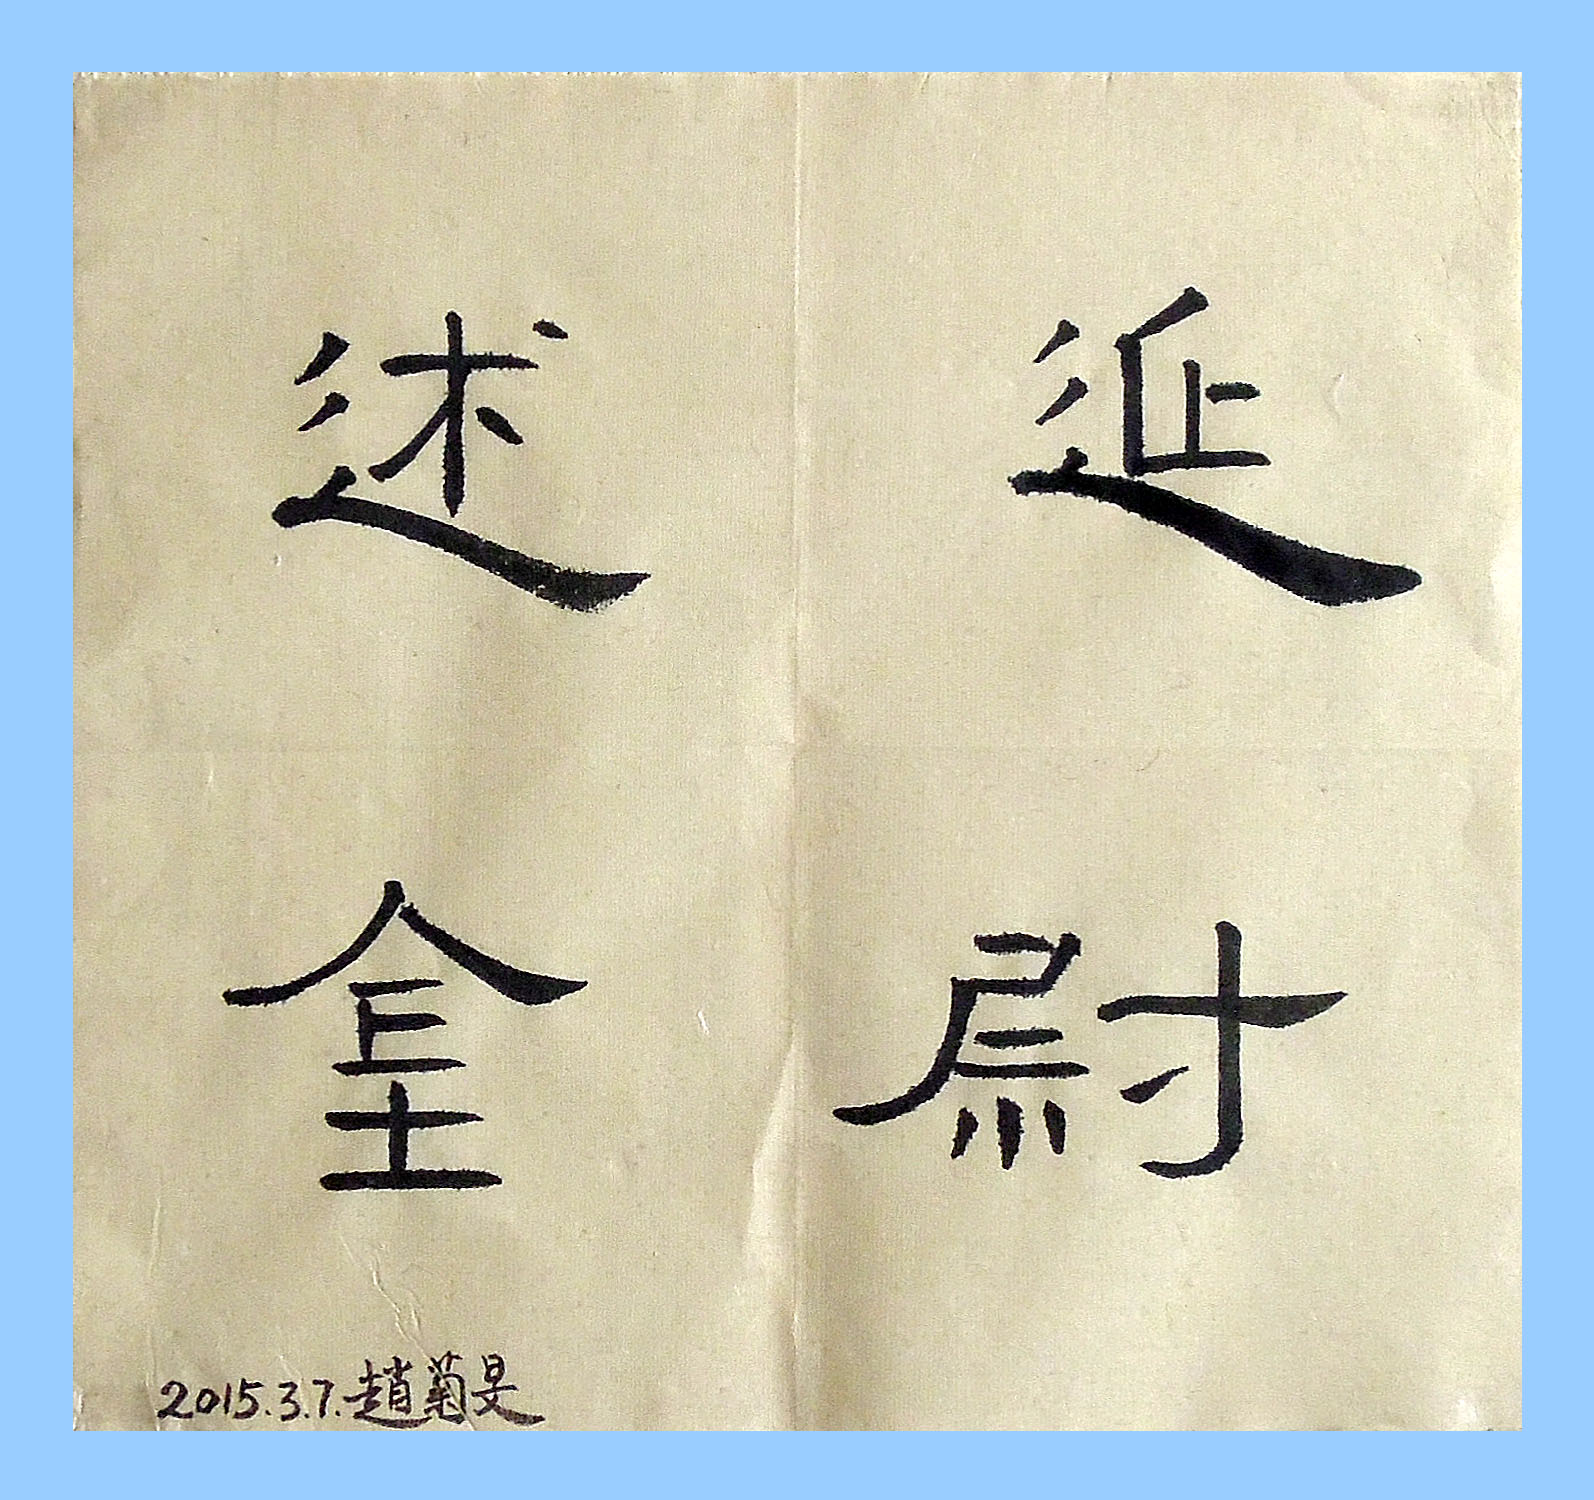 延尉
述
2015.3.7.趙菊旻